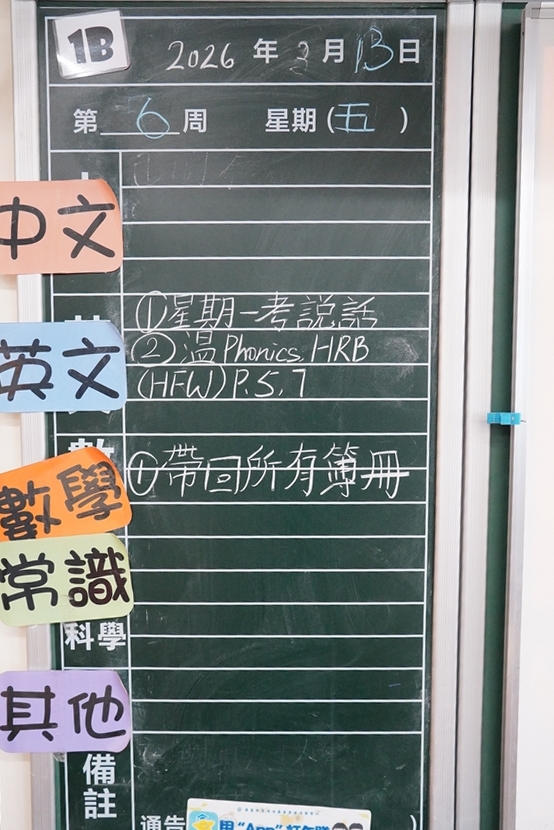 1B
2026 年 3 月 13 日
第 6 周 星期 (五)
中文
英文
①星期一考説話
②温 Phonics, HRB
(HFW) P.5,7
數學
①帶回所有簿冊
常識
科學
其他
備註
通告
用 "App"